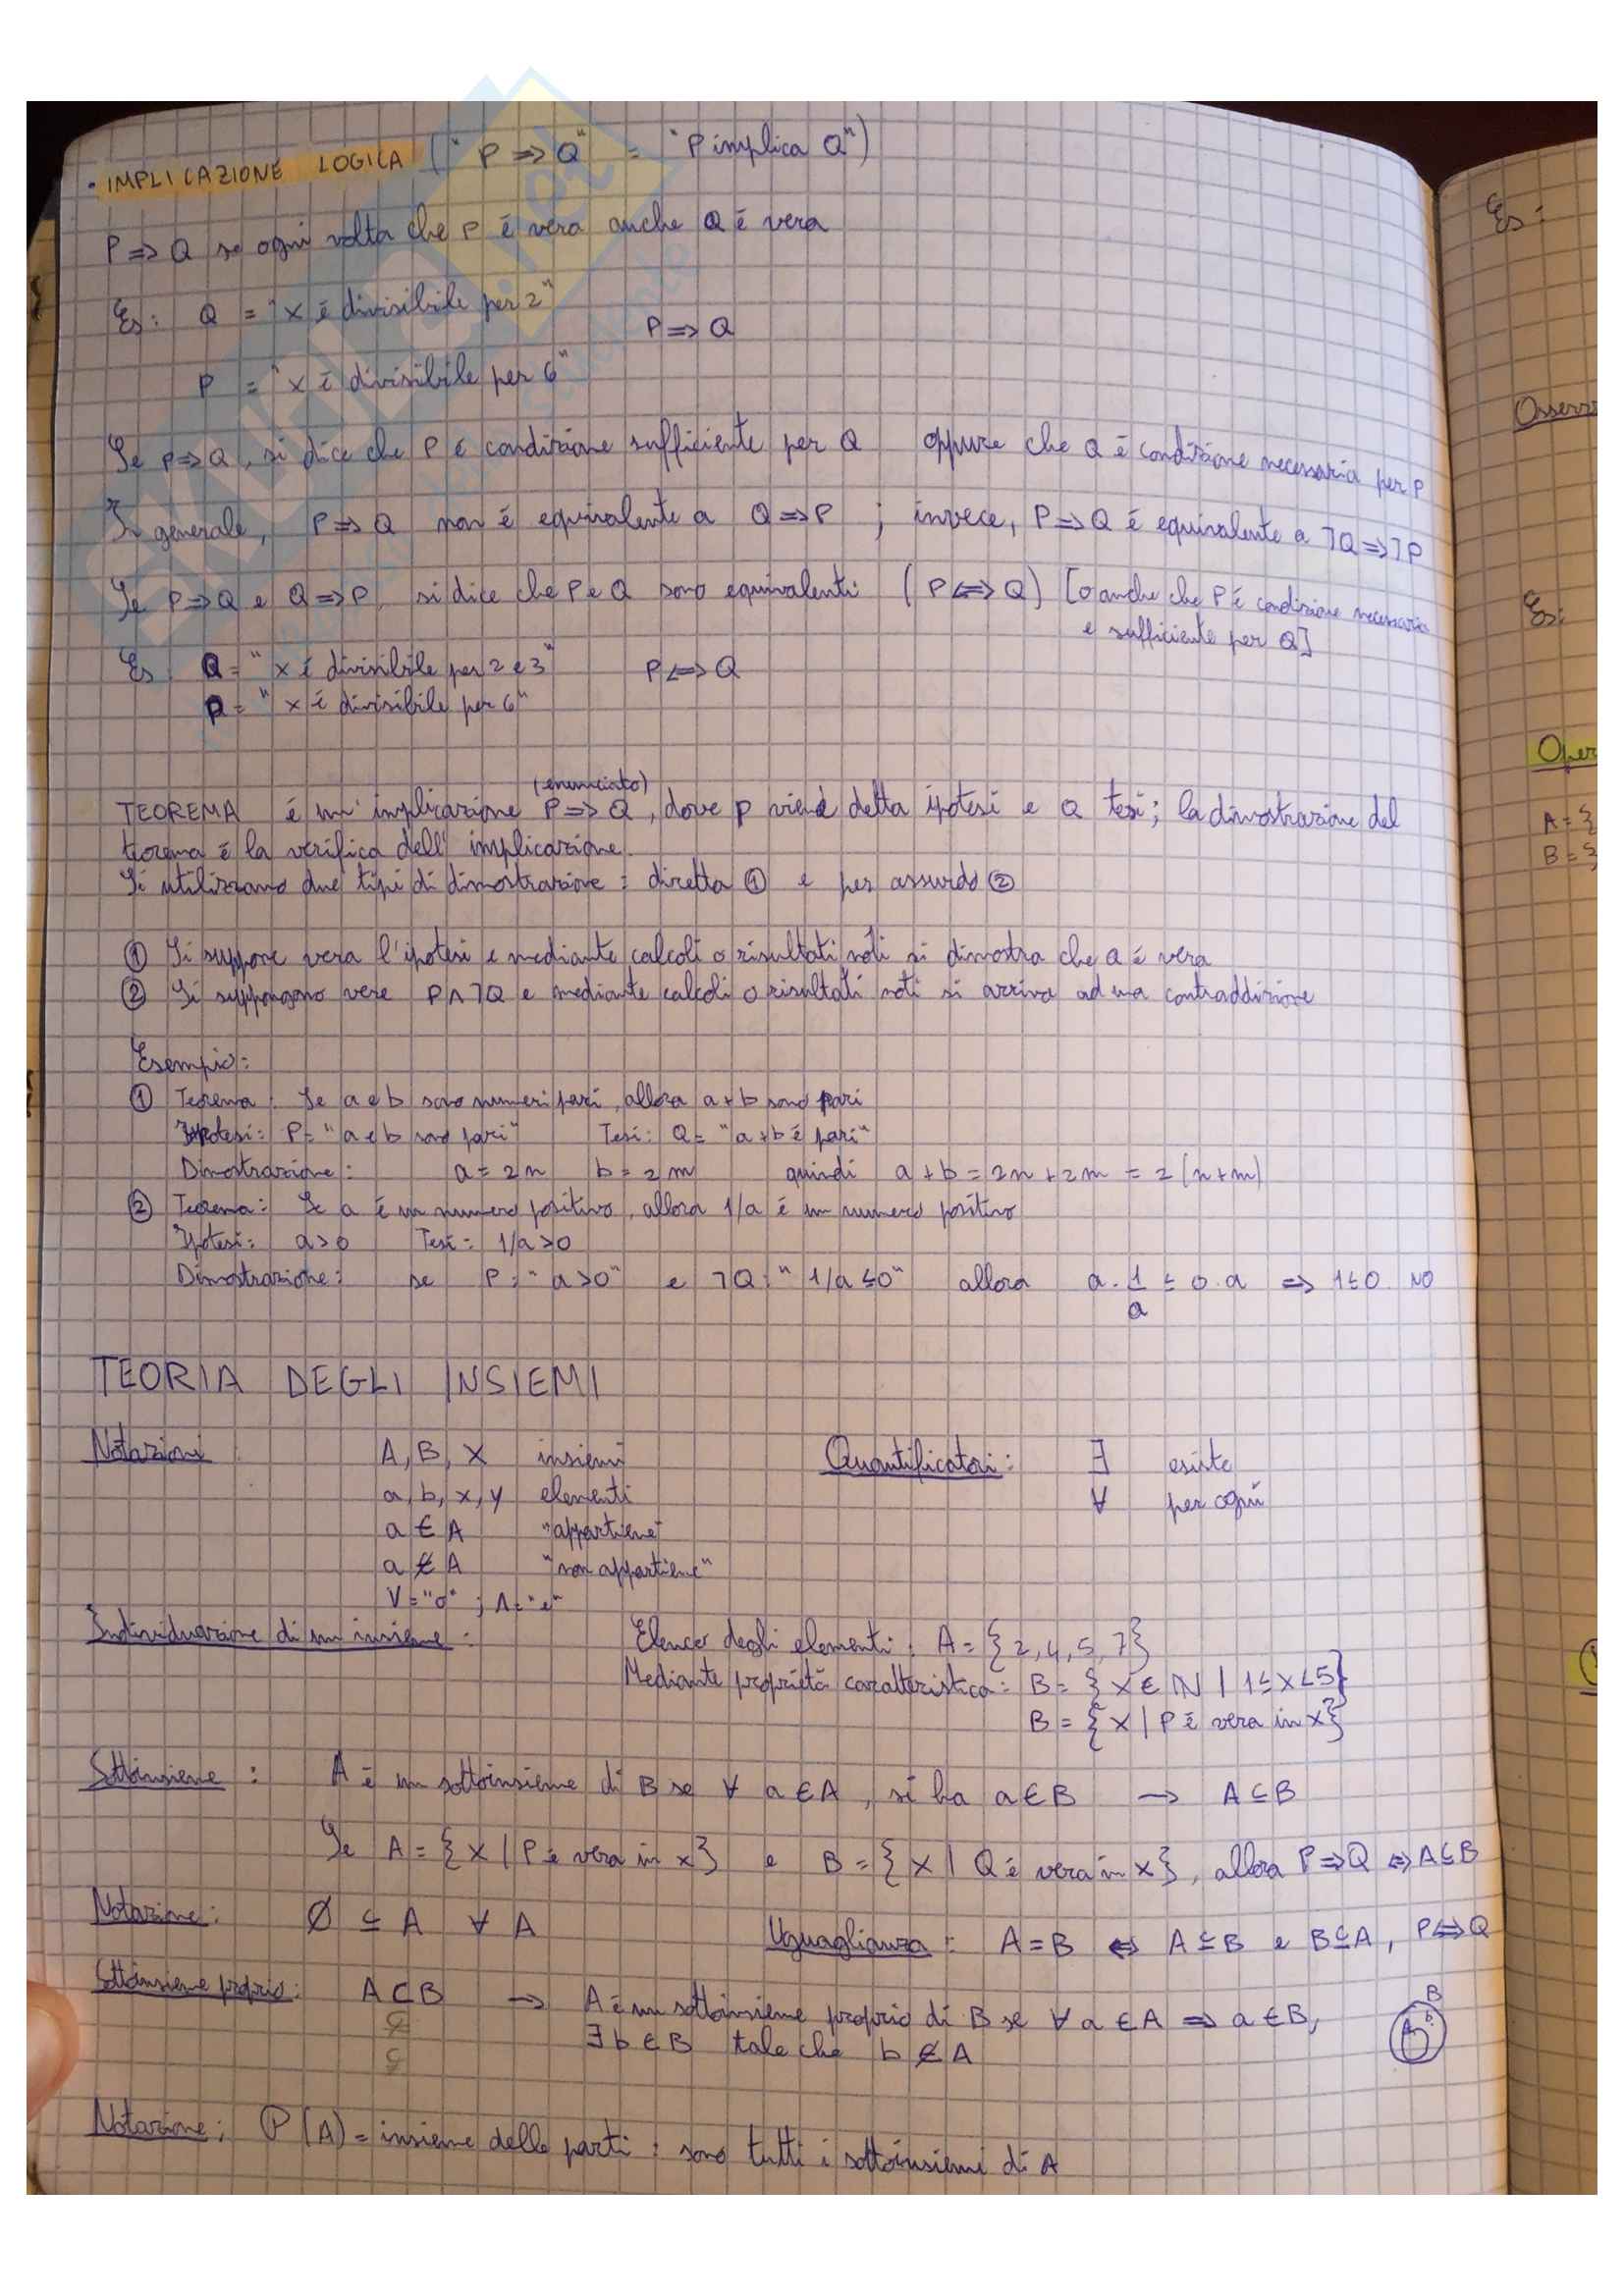 • IMPLICAZIONE LOGICA ("P ⇒ Q" = "P implica Q")
P ⇒ Q se ogni volta che P é vera anche Q é vera
Es: Q = "x é divisibile per 2"
P ⇒ Q
P = "x é divisibile per 6"
Se P ⇒ Q, si dice che P é condizione sufficiente per Q oppure che Q é condizione necessaria per P
In generale, P ⇒ Q non é equivalente a Q ⇒ P ; invece, P ⇒ Q é equivalente a ¬Q ⇒ ¬P
Se P ⇒ Q e Q ⇒ P, si dice che P e Q sono equivalenti (P ⇔ Q) [o anche che P é condizione necessaria
e sufficiente per Q]
Es: Q = "x é divisibile per 2 e 3" P ⇔ Q
P = "x é divisibile per 6"
(enunciato)
TEOREMA é un' implicazione P ⇒ Q, dove P viene detta ipotesi e Q tesi; la dimostrazione del
teorema é la verifica dell' implicazione.
Si utilizzano due tipi di dimostrazione: diretta ① e per assurdo ②
① Si suppone vera l'ipotesi e mediante calcoli o risultati noti si dimostra che Q é vera
② Si suppongono vere P ∧ ¬Q e mediante calcoli o risultati noti si arriva ad una contraddizione
Esempio:
① Teorema: Se a e b sono numeri pari, allora a + b sono pari
Ipotesi: P = "a e b sono pari" Tesi: Q = "a + b é pari"
Dimostrazione: a = 2n b = 2m quindi a + b = 2n + 2m = 2(n+m)
② Teorema: Se a é un numero positivo, allora 1/a é un numero positivo
Ipotesi: a > 0 Tesi: 1/a > 0
Dimostrazione: se P: "a > 0" e ¬Q: "1/a ≤ 0" allora a · 1/a ≤ 0 · a ⇒ 1 ≤ 0 NO
TEORIA DEGLI INSIEMI
Notazioni A, B, X insiemi Quantificatori: ∃ esiste
a, b, x, y elementi ∀ per ogni
a ∈ A "appartiene"
a ∉ A "non appartiene"
V = "o" ; Λ = "e"
Individuazione di un insieme: Elenco degli elementi: A = {2, 4, 5, 7}
Mediante proprietà caratteristica: B = {x ∈ ℕ | 1 ≤ x < 5}
B = {x | P é vera in x}
Sottoinsieme: A é un sottoinsieme di B se ∀ a ∈ A, si ha a ∈ B → A ⊆ B
Se A = {x | P é vera in x} e B = {x | Q é vera in x}, allora P ⇒ Q ⇔ A ⊆ B
Notazione: Ø ⊆ A ∀ A Uguaglianza: A = B ⇔ A ⊆ B e B ⊆ A, P ⇔ Q
Sottoinsieme proprio: A ⊂ B → A é un sottoinsieme proprio di B se ∀ a ∈ A ⇒ a ∈ B,
⊊ ∃ b ∈ B tale che b ∉ A
⊊
B
A b
Notazione: P(A) = insieme delle parti: sono tutti i sottoinsiemi di A
Es:
Es:
A = {
B = {